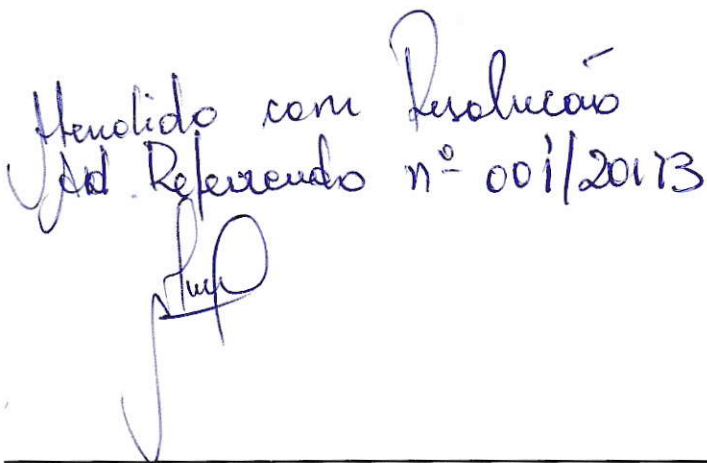 Atendido com Resolução
Ad Referendo nº 001/2013